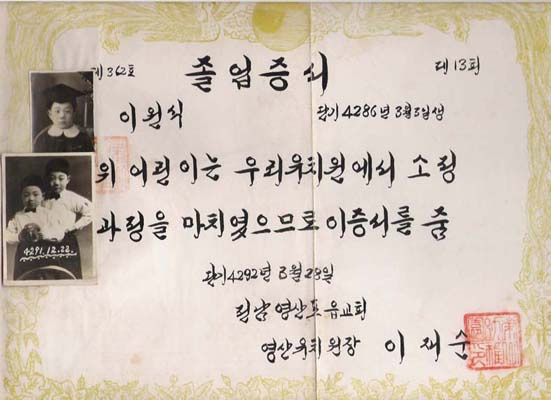 제362호
졸업증서
제13회
이원식
단기4286년3월3일생
위 어린이는 우리유치원에서 소정
과정을 마치였으므로 이증서를 줌
4291.12.22.
단기4292년 3월 28일
전남 영산포읍교회
영산유치원장 이재순